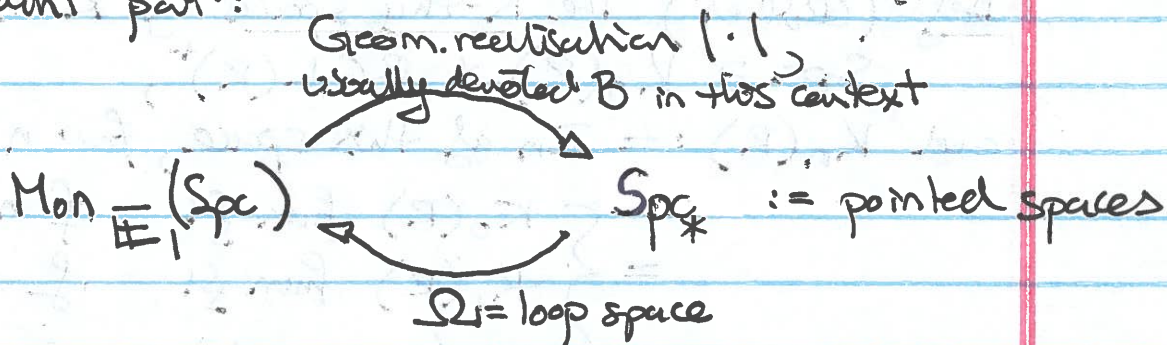 pair:
Geom. realisation |·|,
usually denoted B in this context
Mon_𝔼₁(Spc) Spc_* := pointed spaces
Ω = loop space